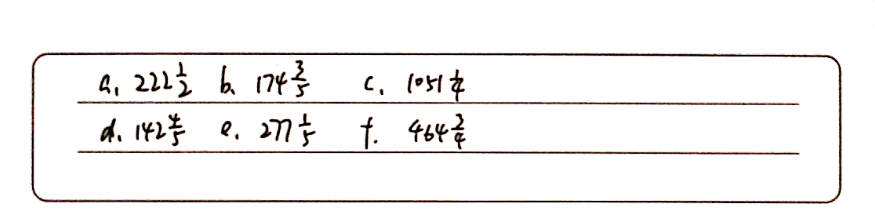 a. 222 1/2 b. 174 3/5 c. 1051 1/4
d. 142 4/5 e. 277 1/5 f. 464 3/4